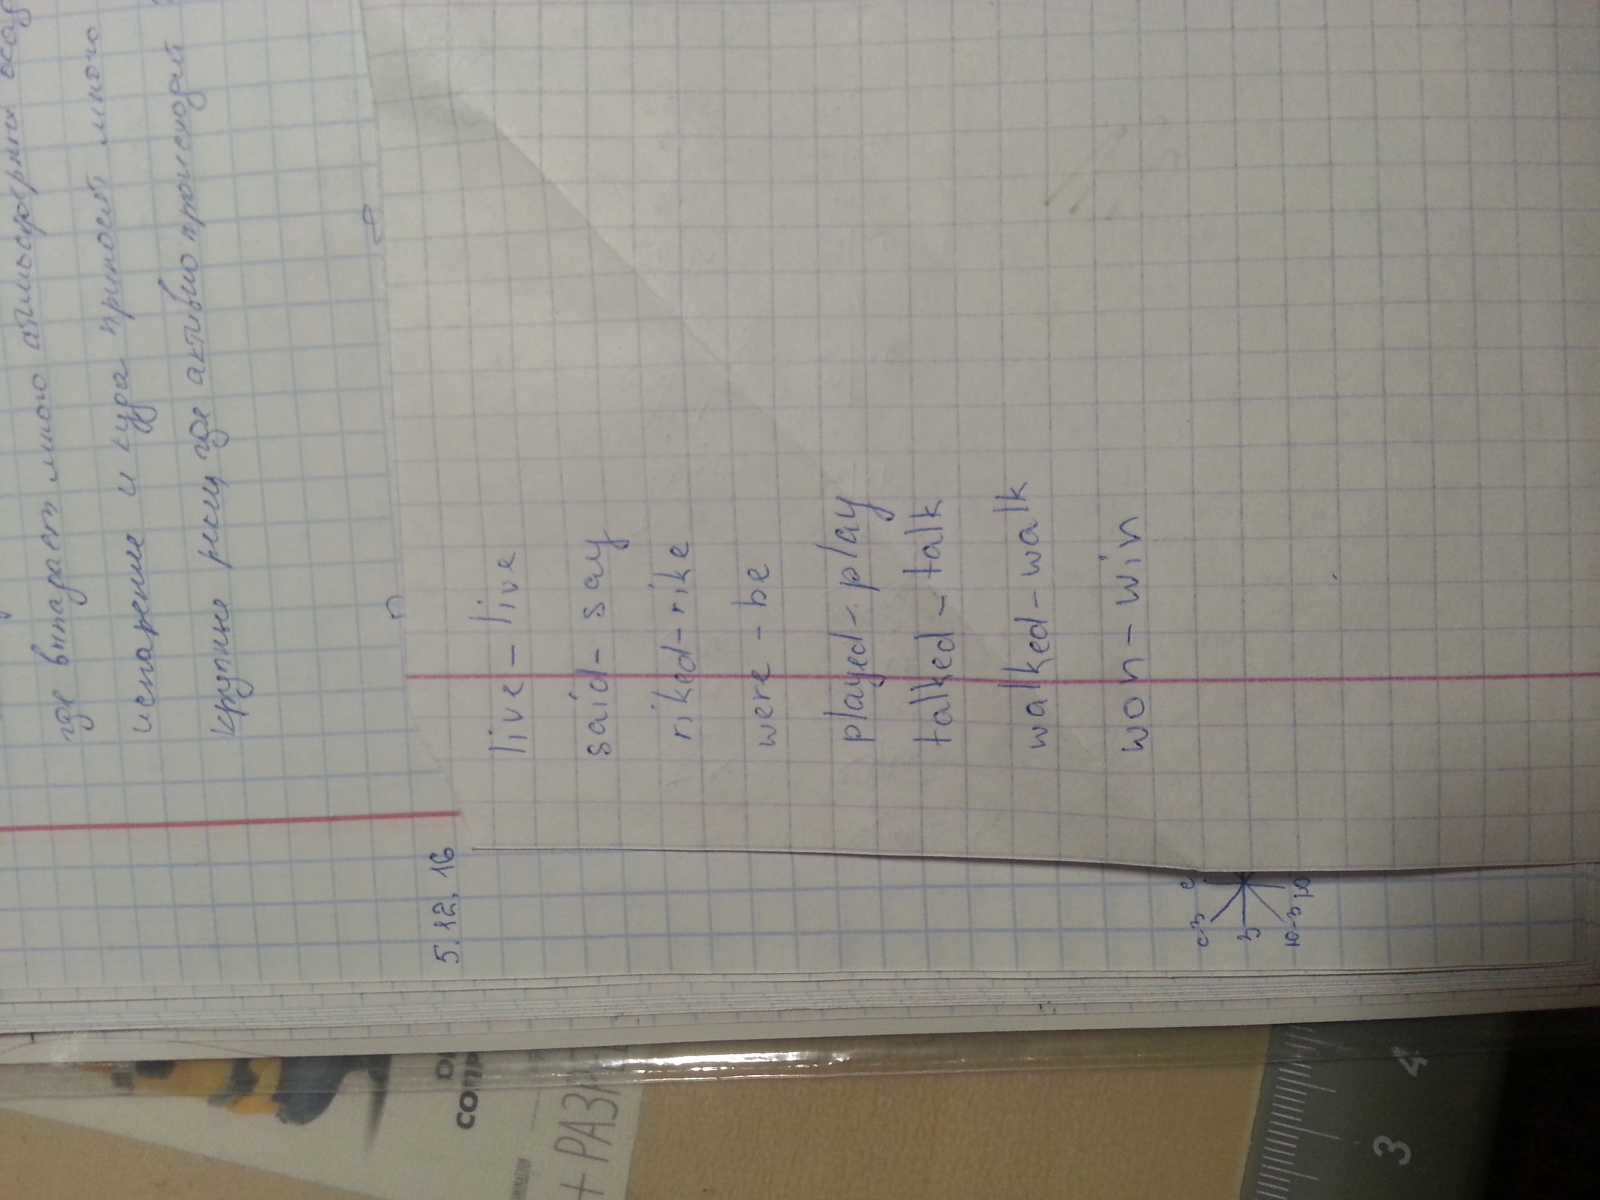 где выпадает много атмосферных
испарение и кура приносит много
крупные реки где активно происходит
5.12.16
live - live
said - say
riked - rike
were - be
played - play
talked - talk
walked - walk
won - win
с
с-з
з
ю-з
ю
+ РАЗ
3 4